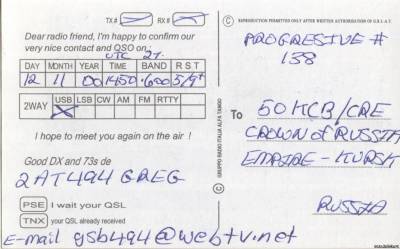 TX# RX#
Dear radio friend, I'm happy to confirm our
very nice contact and QSO on:
UTC 27.
DAY MONTH YEAR TIME BAND R S T
12 11 00 1450 .600 5/9+
2WAY USB LSB CW AM FM RTTY
I hope to meet you again on the air !
Good DX and 73s de
2AT494 GREG
PSE I wait your QSL
TNX your QSL already received
E-mail gsb494@webtv.net
GRUPPO RADIO ITALIA ALFA TANGO
REPRODUCTION PERMITTED ONLY AFTER WRITTEN AUTHORISATION OF G.R.I.A.T.
PROGRESIVE #
138
To 50 KCB/CRE
CROWN of RUSSIA
EMPIRE - KURSK
RUSSIA